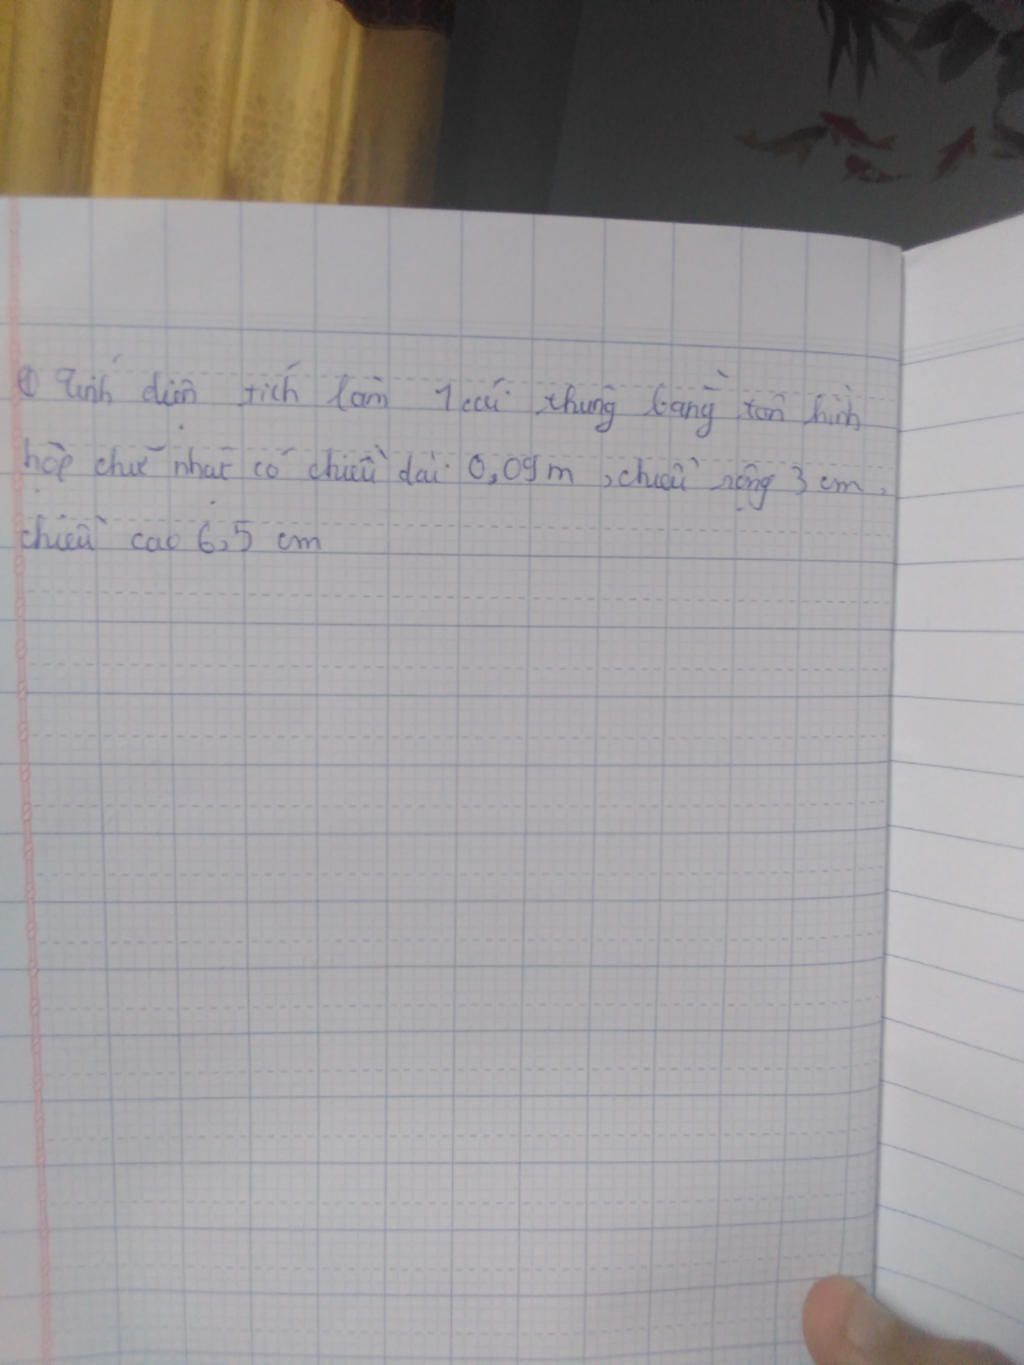 ① Tính diện tích làm 1 cái thùng bằng tôn hình
hộp chữ nhật có chiều dài 0,09 m, chiều rộng 3 cm,
chiều cao 6,5 cm